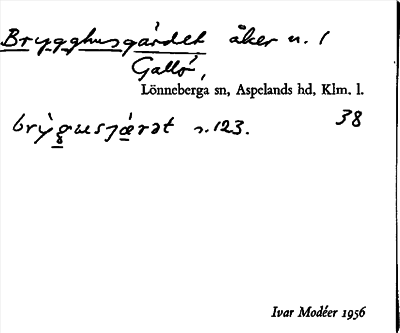 Brygghusgärdet åker n. 1
Gallö,
Lönneberga sn, Aspelands hd, Klm. l.
38
s. 123.
Ivar Modéer 1956